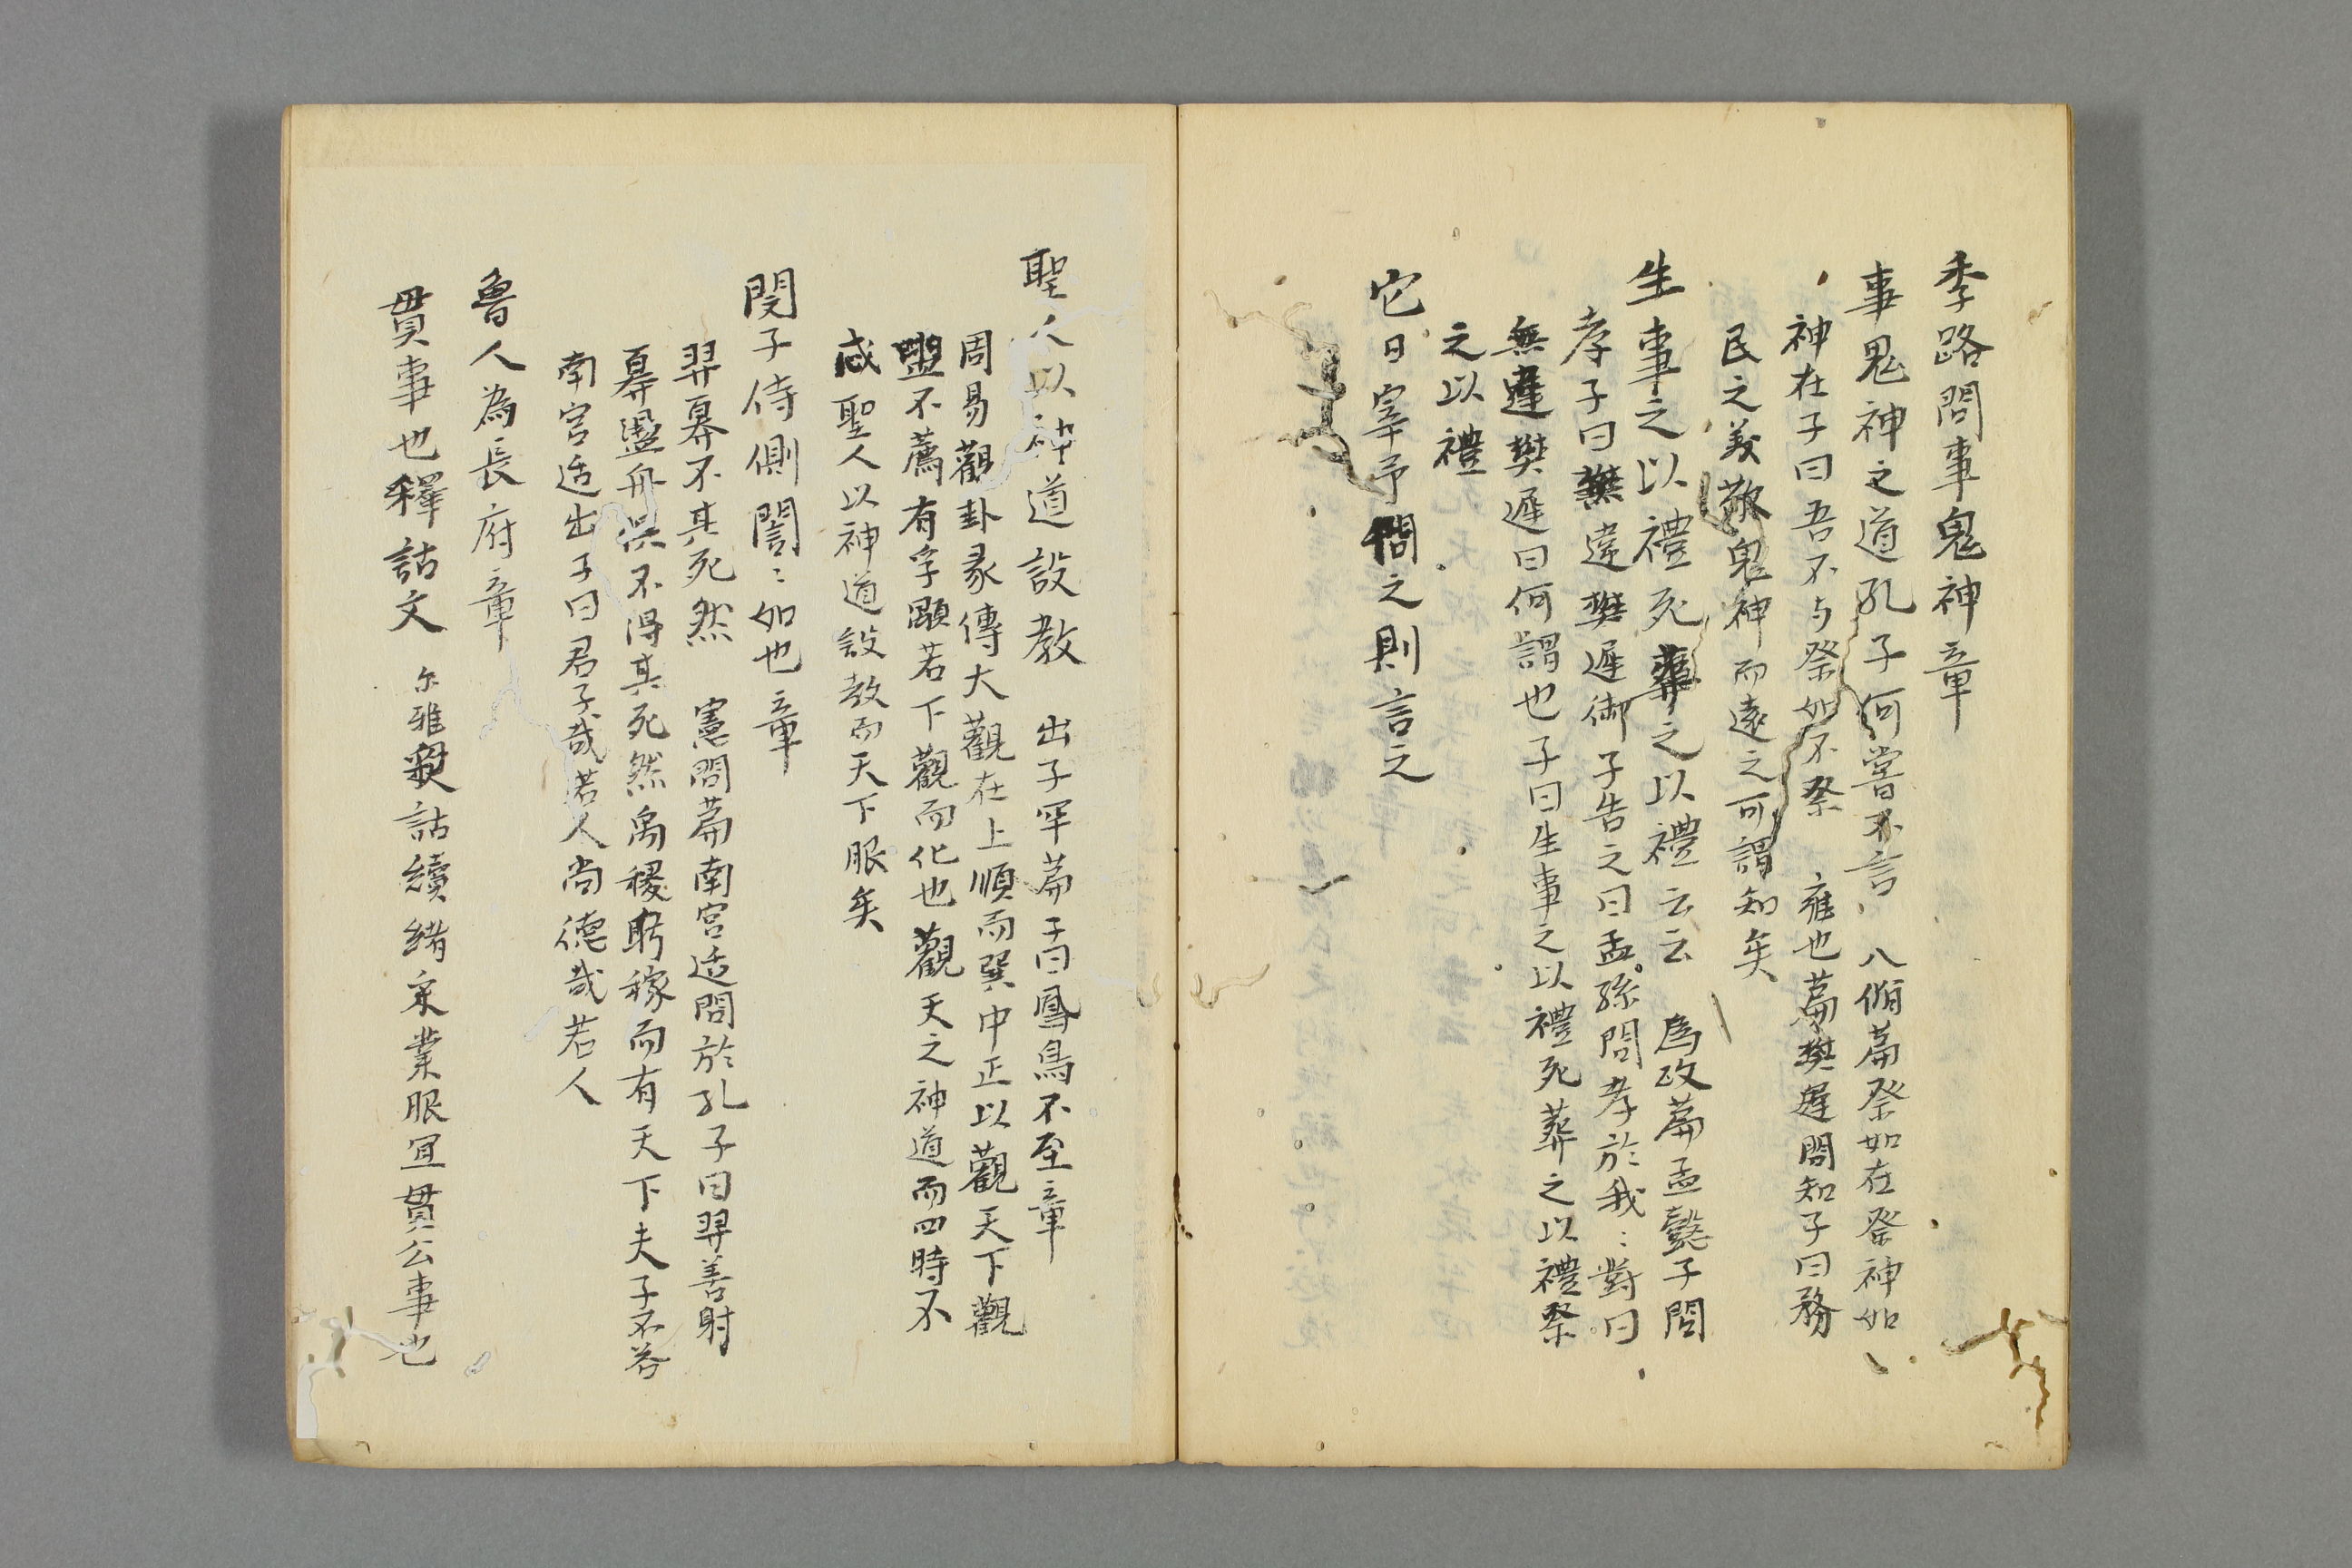 季路問事鬼神章
事鬼神之道孔子何嘗不言 八佾篇祭如在祭神如
神在子曰吾不与祭如不祭 雍也篇樊遲問知子曰務
民之義敬鬼神而遠之可謂知矣
生事之以禮死葬之以禮云云 為政篇孟懿子問
孝子曰無違樊遲御子告之曰孟孫問孝於我〻對曰
無違樊遲曰何謂也子曰生事之以禮死葬之以禮祭
之以禮
它日宰予問之則言之
聖人以神道設教 出子罕篇子曰鳳鳥不至章
周易觀卦彖傳大觀在上順而巽中正以觀天下觀
盥不薦有孚顒若下觀而化也觀天之神道而四時不
忒聖人以神道設教而天下服矣
閔子侍側誾〻如也章
羿奡不其死然 憲問篇南宮适問於孔子曰羿善射
奡盪舟俱不得其死然禹稷躬稼而有天下夫子不答
南宮适出子曰君子哉若人尚德哉若人
魯人為長府章
貫事也釋詁文 尓雅釈詁續緒采業服宜貫公事也